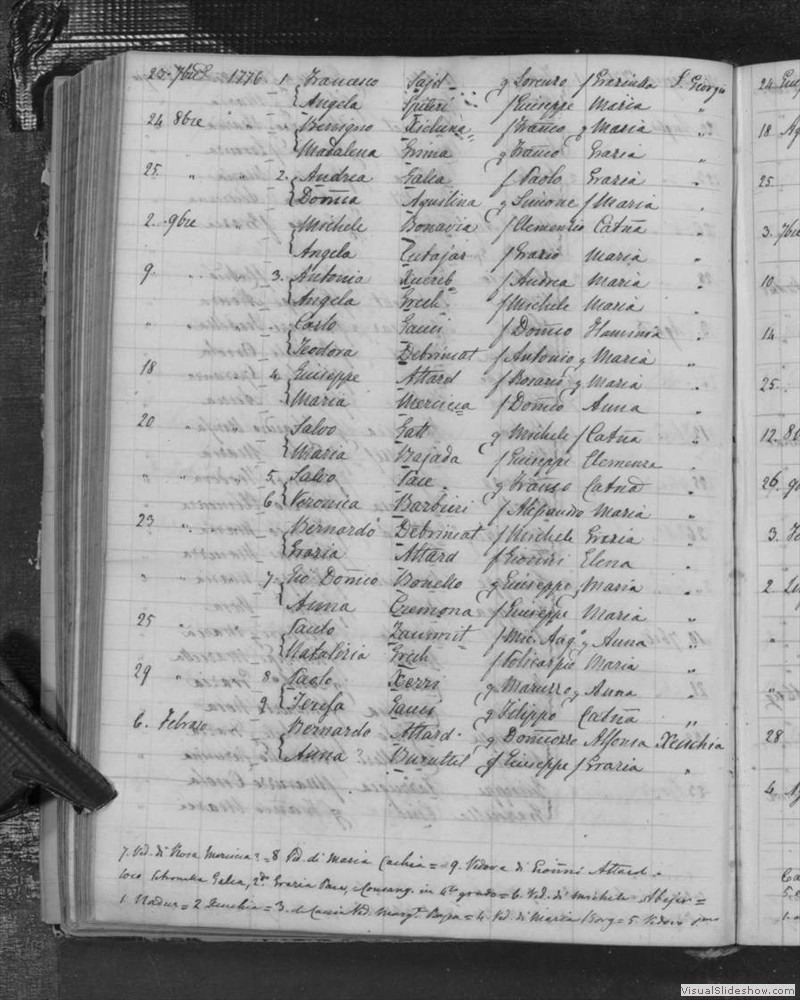 23. 7bre 1776 1. Francesco Said g Lorenzo f Graziulla S. Georgio
Angela Spiteri f Giuseppe Maria "
24 8bre Benigno Xicluna f Franco g Maria "
Madalena Grima g Franco Grazia "
25. " " 2. Andrea Galea f Paolo Grazia "
Domca Agustina g Simone f Maria "
2. 9bre Michele Bonavia f Clemenzio Catna "
Angela Cutajar f Grazio Maria "
9 3. Antonia Xuereb f Andrea Maria "
Angela Grech f Michele Maria "
" Carlo Gauci f Domco Flaminia "
Teodora Debrincat f Antonio g Maria "
18 4. Giuseppe Attard f Rosario g Maria "
Maria Mercieca f Domco Anna "
20 Salvo Gatt g Michele f Catna "
Maria Bajada f Giuseppe Clemenza "
" " 5. Salvo Pace g Franco Catna "
6. Veronica Barbieri f Alessandro Maria "
23 " Bernardo Debrincat f Michele Grazia "
Grazia Attard f Gionni Elena "
" " 7. Gio Domco Bonello g Giuseppe Maria "
Anna Cremona f Giuseppe Maria "
25 Paulo Zammit f Mic. Ang. g Anna "
Natalizia Grech f Policarpio Maria "
29 " 8. Paolo Xerri g Maruzzo g Anna "
9. Teresa Gauci g Filippo Catna "
6. Febraro Bernardo Attard g Alfonsa Xeuchia
Anna ? Buttigieg g Giuseppe f Grazia "
7. Ved. di Rosa Mercieca? = 8 Ved. di Maria Cachia = 9. Vedova di Gionni Attard.
loco Galea, 2do Grazia Pace, Consang. in 4to grado = 6. Ved. di Michele =
1. Nadur = 2 = 3. Ved. = 4. Ved. di Maria Borg = 5 Vedovo
24
18
25.
3. 7bre
10.
14
25.
12. 8b
26. 9
3.
2.
"
"
28
4.
VisualSlideshow.com